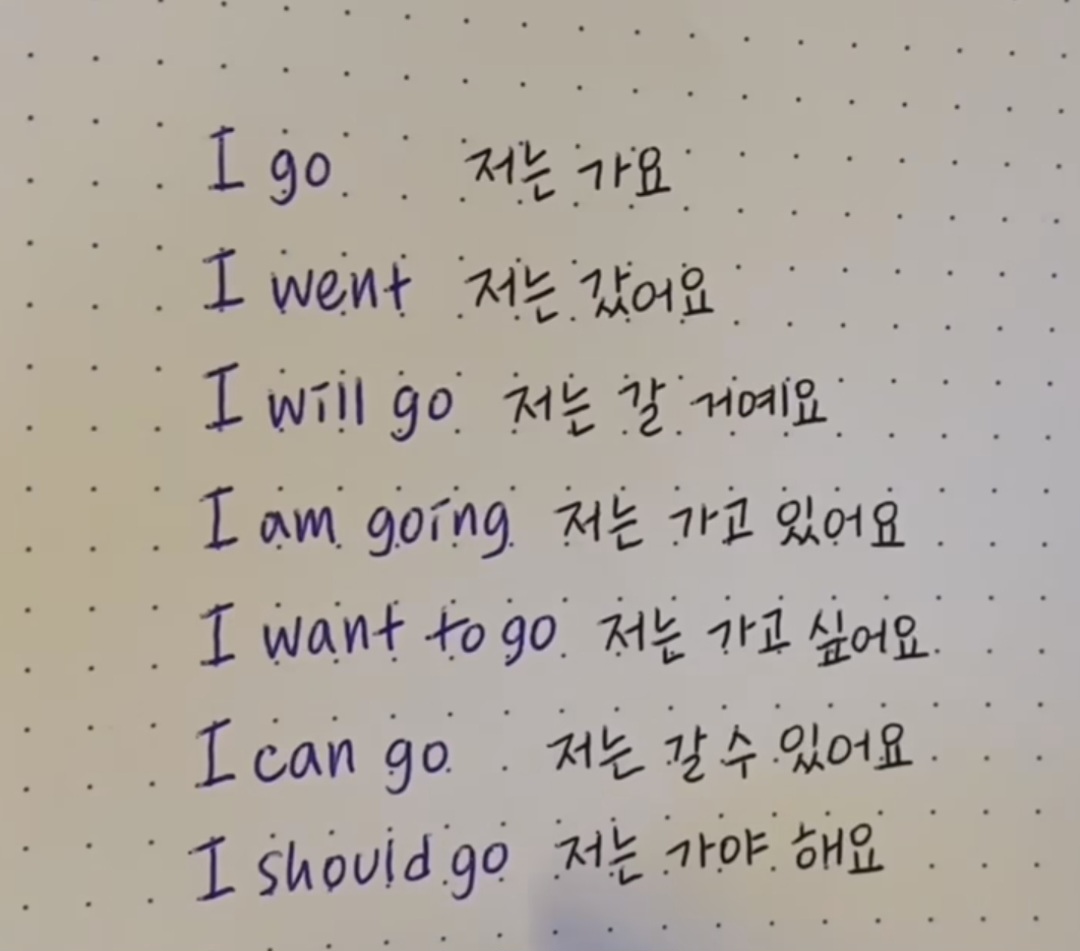 I go 저는 가요
I went 저는 갔어요
I will go 저는 갈 거예요
I am going 저는 가고 있어요
I want to go 저는 가고 싶어요
I can go 저는 갈 수 있어요
I should go 저는 가야 해요